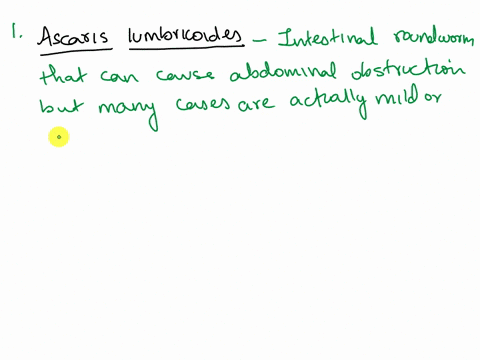 1. Ascaris lumbricoides - Intestinal roundworm
that can cause abdominal obstruction
but many cases are actually mild or